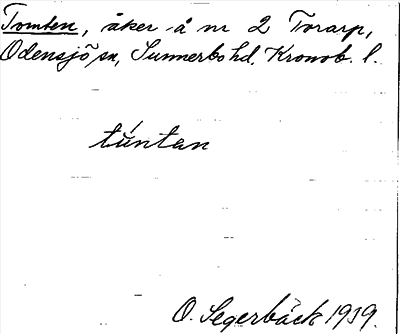 Tomten, åker å nr 2 Torarp,
Odensjö sn, Sunnerbo hd, Kronob. l.
túntan
O. Segerbäck 1919.